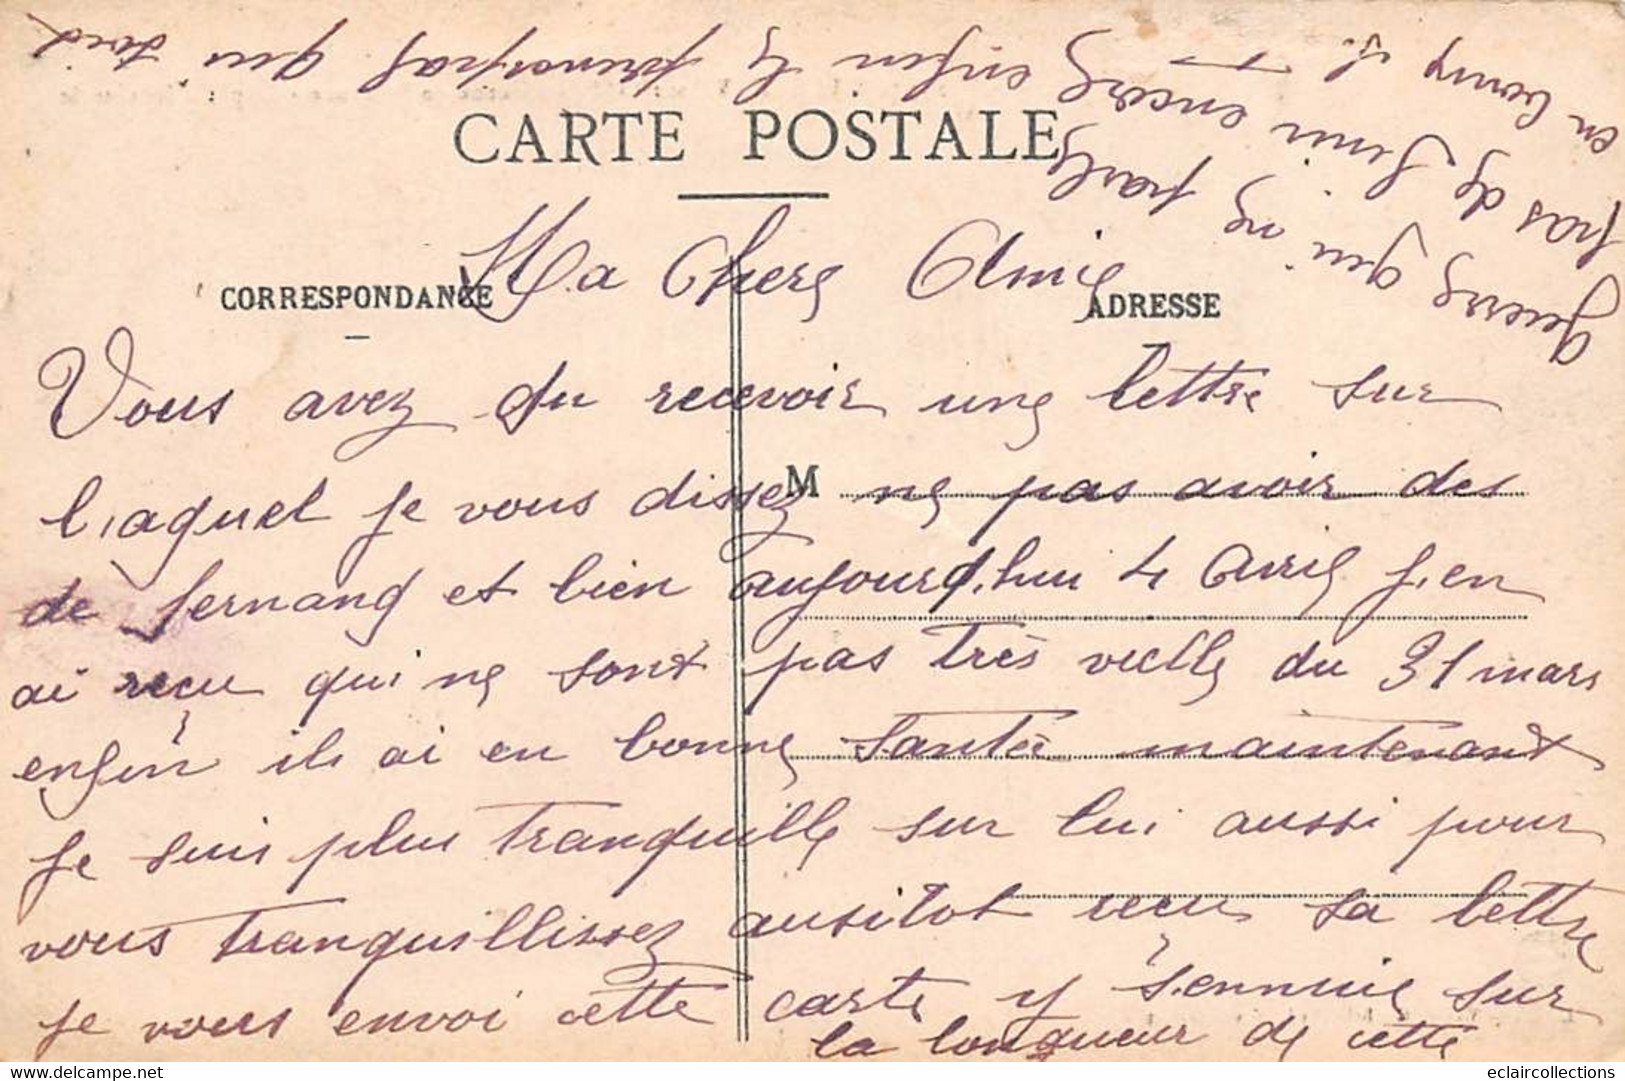 CARTE POSTALE
CORRESPONDANCE
ADRESSE
M
Ma Chere Amie
Vous avez du recevoir une lettre sur
l,aquel je vous dissez ne pas avoir des
de fernand et bien aujourd,hui 4 Avril j,en
ai reçu qui ne sont pas très vielle du 31 mars
enfin ils ai en bonne santée maintenant
je suis plus tranquille sur lui aussi pour
vous tranquillissez ausitot reçu sa lettre
je vous envoi cette carte y s,ennuie sur
la longueur de cette
guerre qui ne parle
pas de finir encore enfin le principal qui soid
en bonny S.
eclaircollections